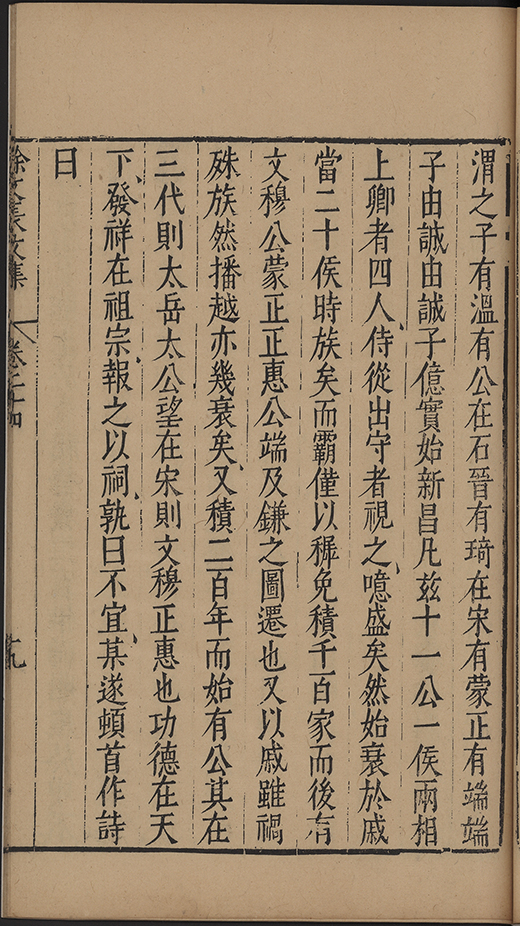 渭之子有溫有公在石晉有琦在宋有蒙正有端端
子由誠由誠子億實始新昌凡茲十一公一侯兩相
上卿者四人侍從出守者視之噫盛矣然始衰於戚
當二十侯時族矣而霸僅以穉免積千百家而後有
文穆公蒙正正惠公端及鎌之圖遷也又以戚雖禍
殊族然播越亦幾衰矣又積二百年而始有公其在
三代則太岳太公望在宋則文穆正惠也功德在天
下發祥在祖宗報之以祠孰曰不宜某遂頓首作詩
曰
徐文長文集
卷二十四
十九